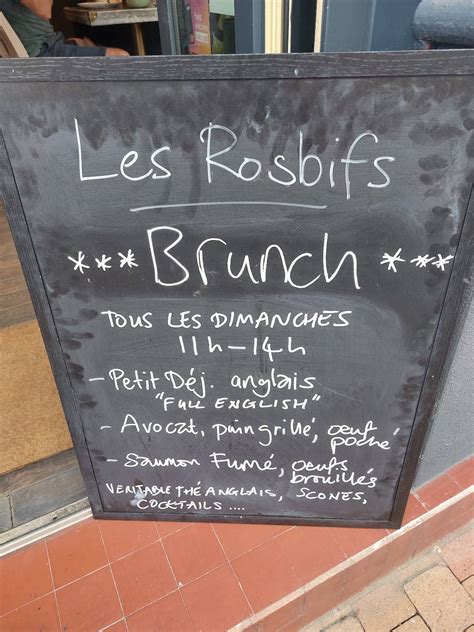 Les Rosbifs
*** Brunch ***
TOUS LES DIMANCHES
11h-14h
- Petit Déj. anglais
"FULL ENGLISH"
- Avocat, pain grillé, oeuf
poché
- Saumon Fumé, oeufs
brouillés
VERITABLE THÉ ANGLAIS, SCONES,
COCKTAILS ....